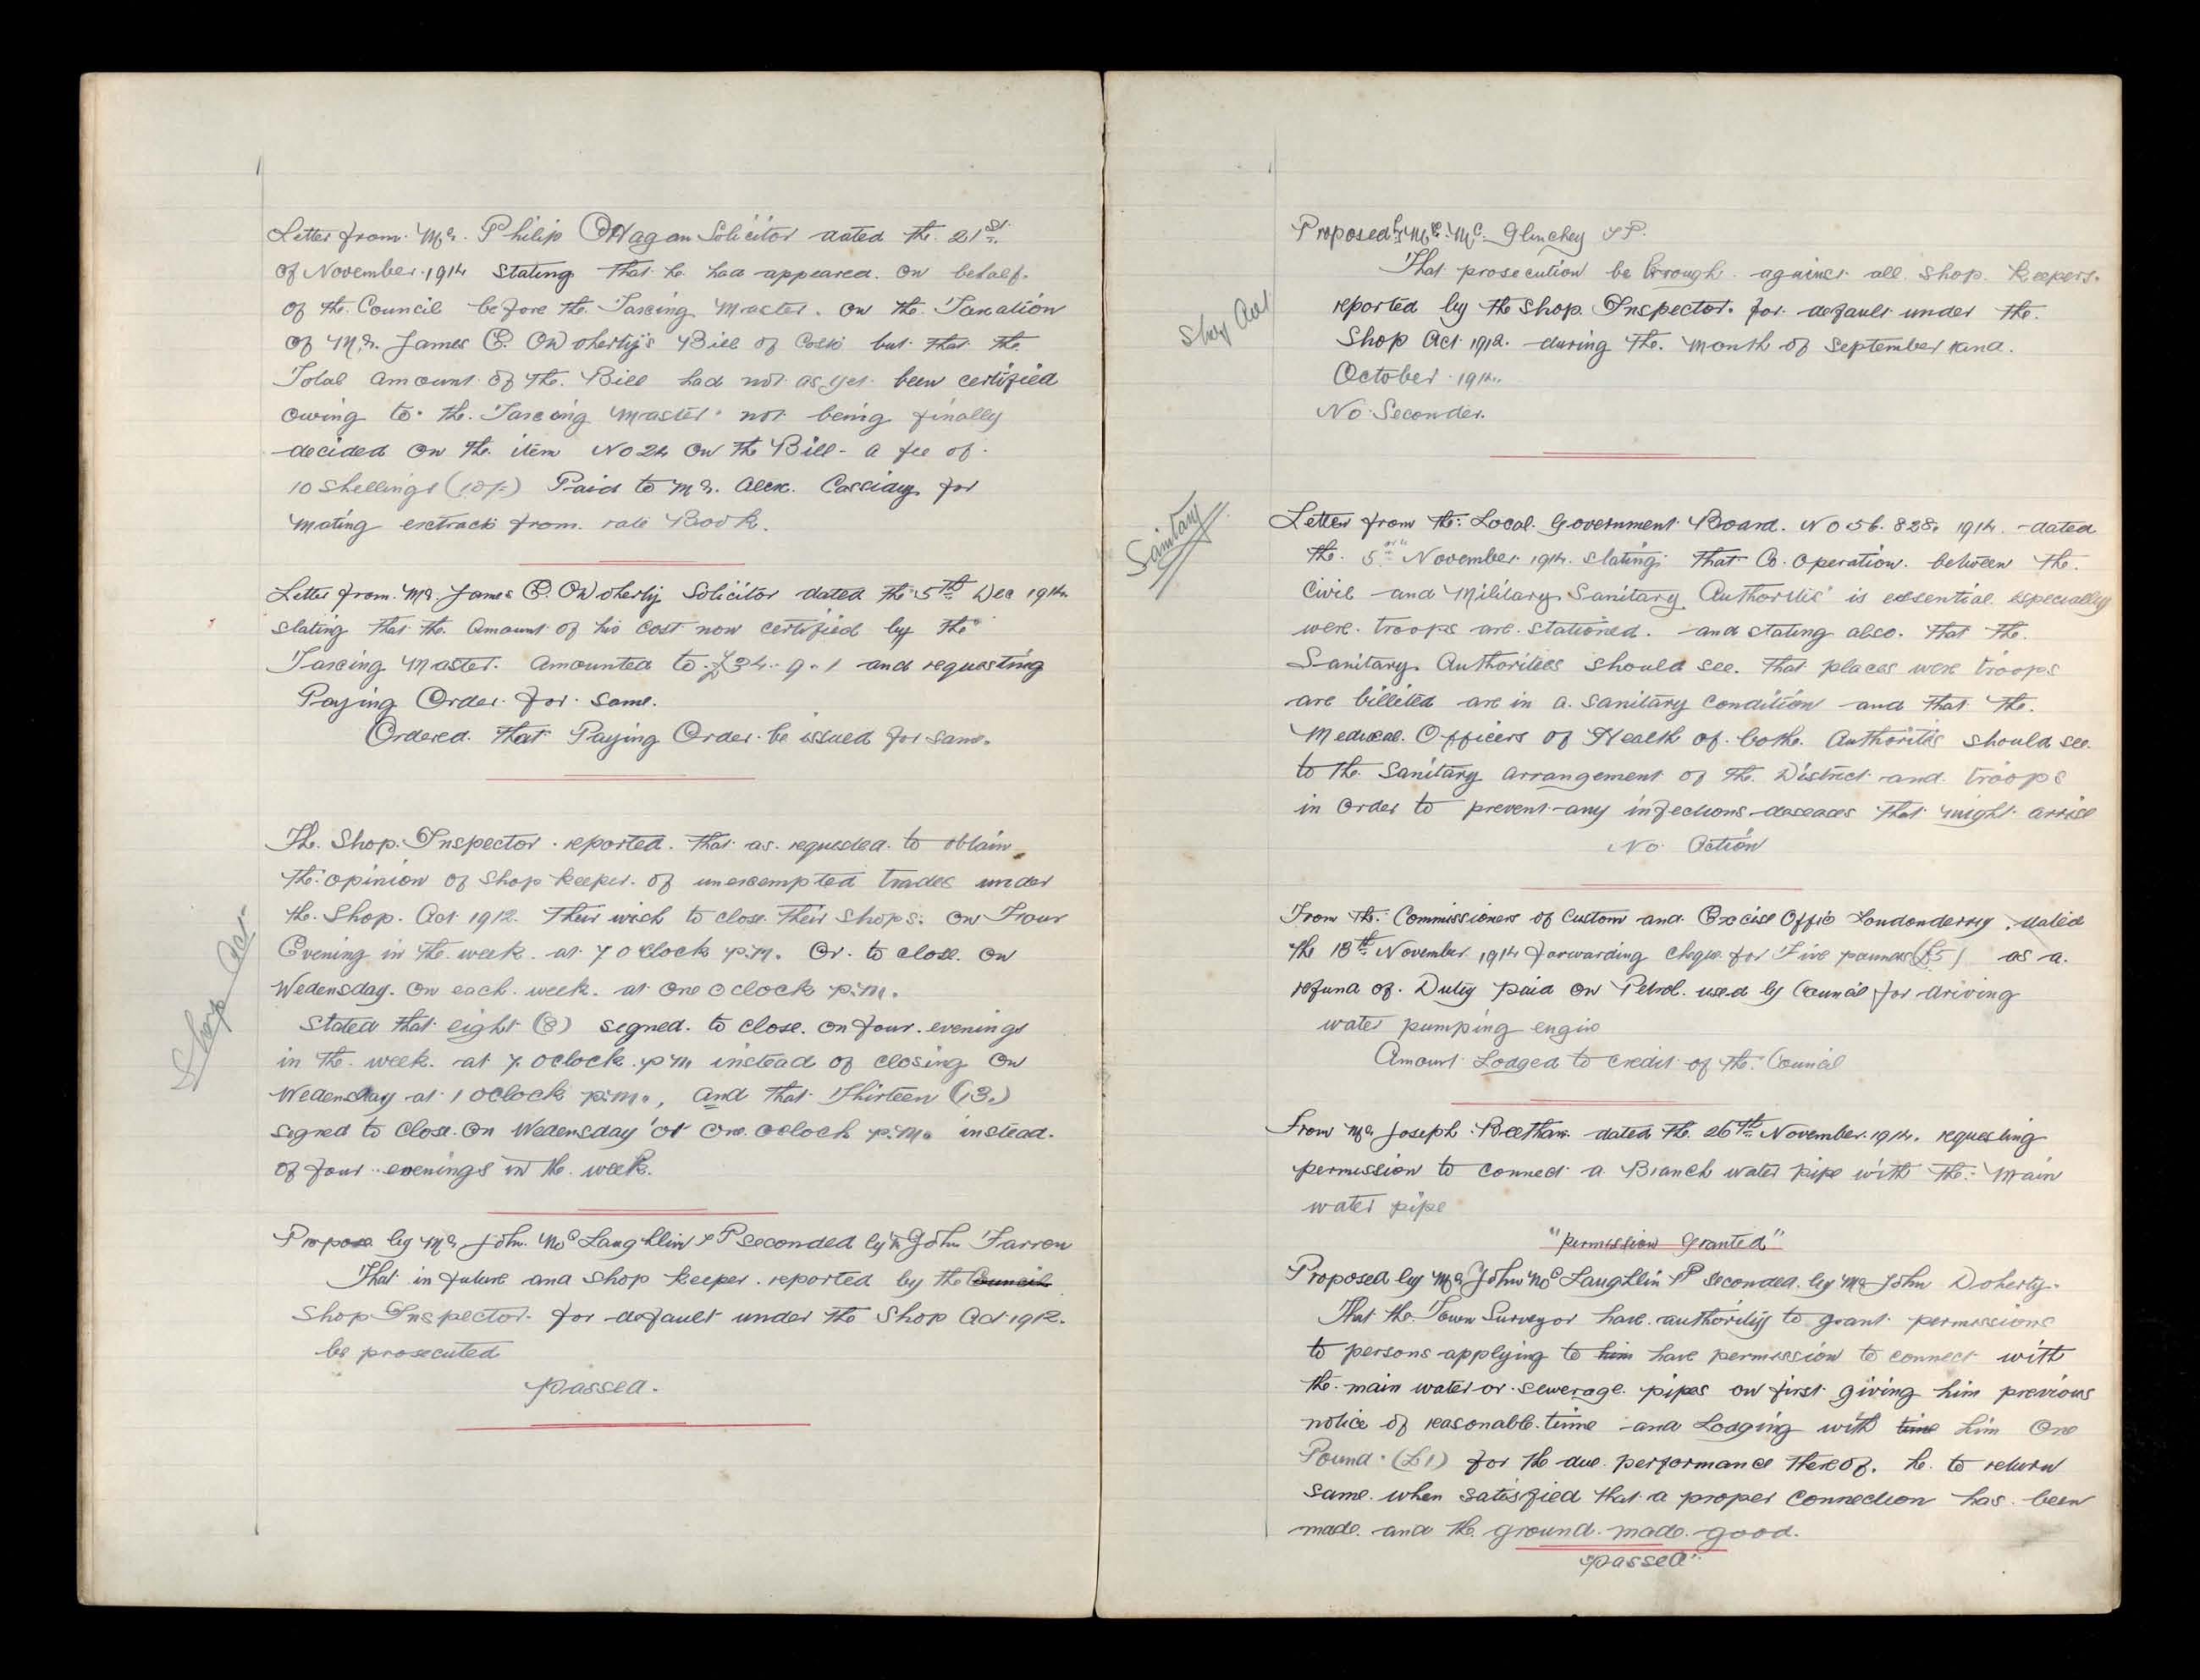 Letter from Mr. Philip O'Hagan Solicitor dated the 21st.
of November 1914 stating that he had appeared on behalf.
of the Council before the Taxing Master. on the Taxation
of Mr. James E. O'Doherty's Bill of Costs but that the
Total amount of the Bill had not as yet been certified
owing to the Taxing Master not being finally
decided on the item No 24 on the Bill - a fee of
10 Shellings (10/-) Paid to Mr. Alex. Cassiday for
mating extracts from rate Book.
Letter from Mr. James E. O'Doherty Solicitor dated the 5th Dec 1914
stating that the Amount of his cost now certified by the
Taxing Master. Amounted to £34-9-1 and requesting
Paying Order for same.
Ordered that Paying Order be issued for same.
Shop Act.
The Shop Inspector reported that as requested to obtain
the opinion of Shop keeper of unexempted trades under
the Shop Act 1912. Their wish to close their shops. on Four
Evening in the week at 7 o'clock p.m. Or to close on
Wedensday. on each week. at one o'clock p.m.
Stated that eight (8) signed to close on four evenings
in the week at 7 oclock pm instead of closing on
Wedensday at 1 oclock p.m., and that Thirteen (13.)
signed to close on Wedensday at One oclock p.m. instead.
of four evenings in the week.
Propose by Mr John McLaughlin JP seconded by Mr John Farren
That in future and shop keeper reported by the Council
Shop Inspector for default under the Shop Act 1912.
be prosecuted
passed.
Proposed by Mr. Mc. Glinchey JP.
Shop Act
That prosecution be brough against all shop keepers.
reported by the Shop Inspector for default under the.
Shop Act 1912. during the month of September and.
October 1914.
No Seconder.
Sanitary
Letter from the Local Government Board. No 56.828. 1914. dated
the 5th November 1914. stating that Co. Operation between the.
Civil and Military Sanitary Authoritis is essential especially
were troops are stationed. and stating also. that the.
Sanitary Authorities should see. that places were troops
are billited are in a sanitary condition and that the.
Medical Officers of Health of bothe Authoritis should see.
to the Sanitary arrangement of the District and troops
in order to prevent any infections deseases that might arrise
No Action
From the Commissioners of Custom and Excise Offic Londonderry, dated
the 18th November 1914 forwarding cheque for Five pounds (£5) as a
refund of Duty paid on Petrol used by Council for driving
water pumping engin
Amount Lodged to credit of the Council
From Mr Joseph Beethan dated the 26th November 1914. requesting
permission to connect a Branch water pipe with the Main
water pipe
"permission Granted"
Proposed by Mr John McLaughlin JP Seconded by Mr John Doherty.
That the Town Surveyor have authority to grant permissions
to persons applying to him have permission to connect with
the main water or sewerage pipes on first giving him previous
notice of reasonable time and Lodging with time him One
Pound (£1) for the due performance there of. he to return
same when satisfied that a proper connection has been
made and the ground made good.
"passed"